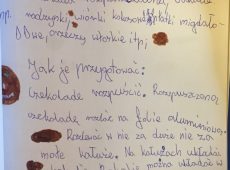 np. rodzynki, wiórki kokosowe, płatki migdało-
we, orzechy włoskie itp;
Jak je przygotować:
Czekoladę rozpuścić. Rozpuszczoną
czekoladę rozlać na folie aluminiową.
Rozlewać w nie za duże nie za
małe kałuże. Na kałużach układać
można układać w